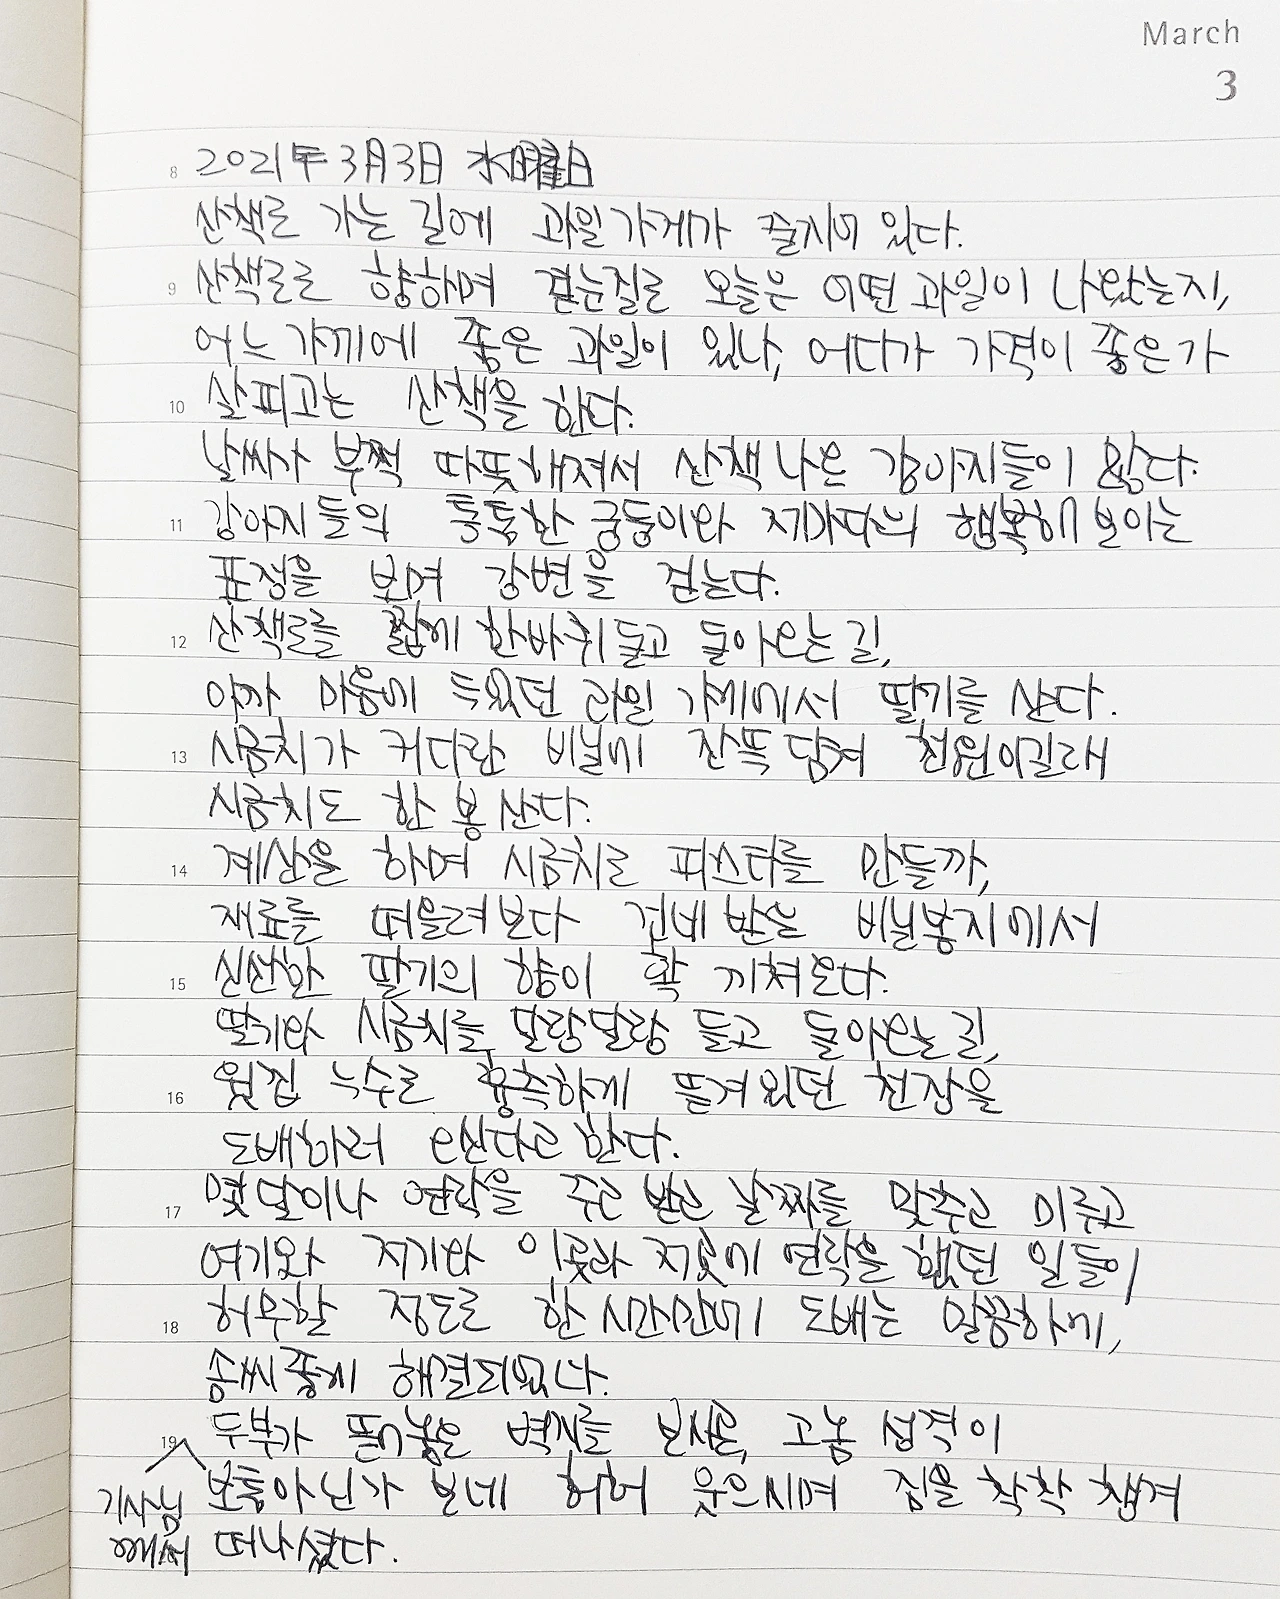 March
3
8 2021年 3月3日 水曜日
산책로 가는 길에 과일가게가 줄지어 있다.
9 산책로로 향하며 곁눈질로 오늘은 어떤 과일이 나왔는지,
어느 가게에 좋은 과일이 있나, 어디가 가격이 좋은가
10 살피고는 산책을 한다.
날씨가 부쩍 따뜻해져서 산책 나온 강아지들이 많다.
11 강아지들의 통통한 궁둥이와 제각각의 행복해 보이는
표정을 보며 강변을 걷는다.
12 산책로를 짧게 한바퀴 돌고 돌아오는 길,
아까 마음에 두었던 과일 가게에서 딸기를 산다.
13 시금치가 커다란 비닐에 잔뜩 담겨 천원이길래
시금치도 한 봉 산다.
14 계산을 하며 시금치로 파스타를 만들까,
재료를 떠올려보다 건네받은 비닐봉지에서
15 신선한 딸기의 향이 확 끼쳐온다.
딸기와 시금치를 달랑달랑 들고 돌아오는 길,
16 윗집 누수로 흉측하게 뜯겨있던 천장을
도배하러 오신다고 한다.
17 몇 달이나 연락을 주고 받고 날짜를 맞추고 미루고
여기와 저기와 이곳과 저곳에 연락을 했던 일들이
18 허무할 정도로 한 시간만에 도배는 말끔하게,
솜씨좋게 해결되었다.
19 두부가 뜯어놓은 벽지를 보시곤, 고놈 성격이
기사님께서 보통아닌가 보네 허허 웃으시며 짐을 착착 챙겨
떠나셨다.